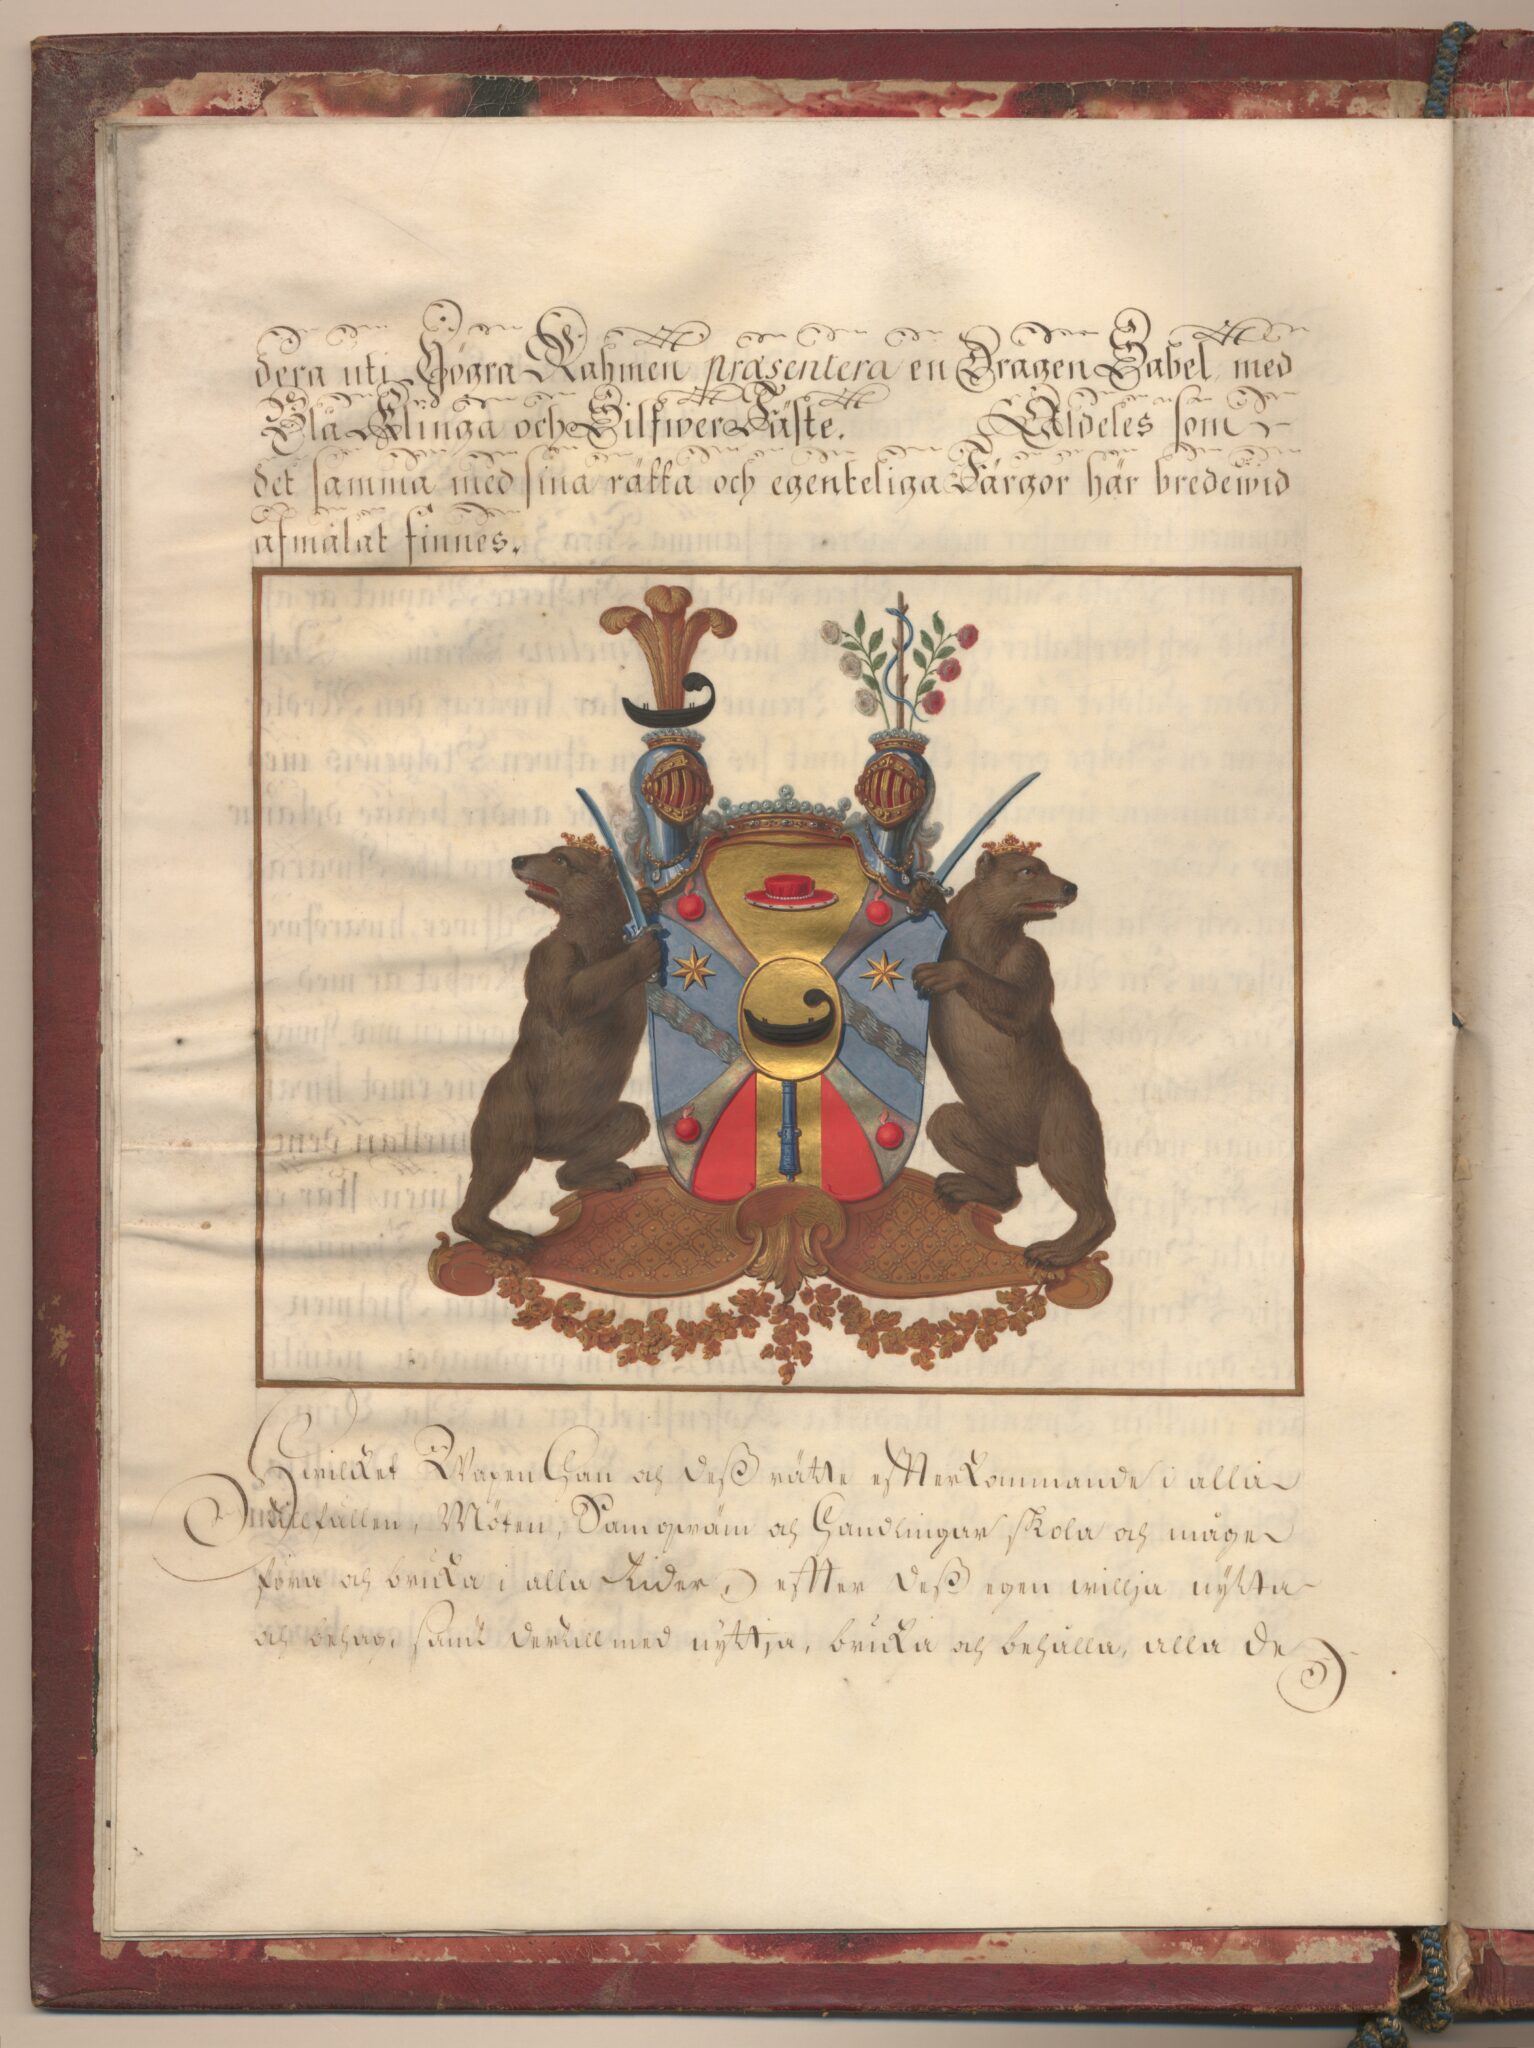 dera uti Högra Rahmen præsentera en Dragen Sabel, med
Blå Klinga och Silfwer Fäste. Aldeles som
det samma med sina rätta och egenteliga Färgor här bredewid
afmålat finnes.
Hwilcket Wapen Han och deß rätte efterkommande i alla
Tillfällen, Möten, Samqwäm och Handlingar skola och måge
föra och bruka i alla Tider, efter deß egen willja nytta
och behag, samt dertill med nyttja, bruka och behålla, alla de